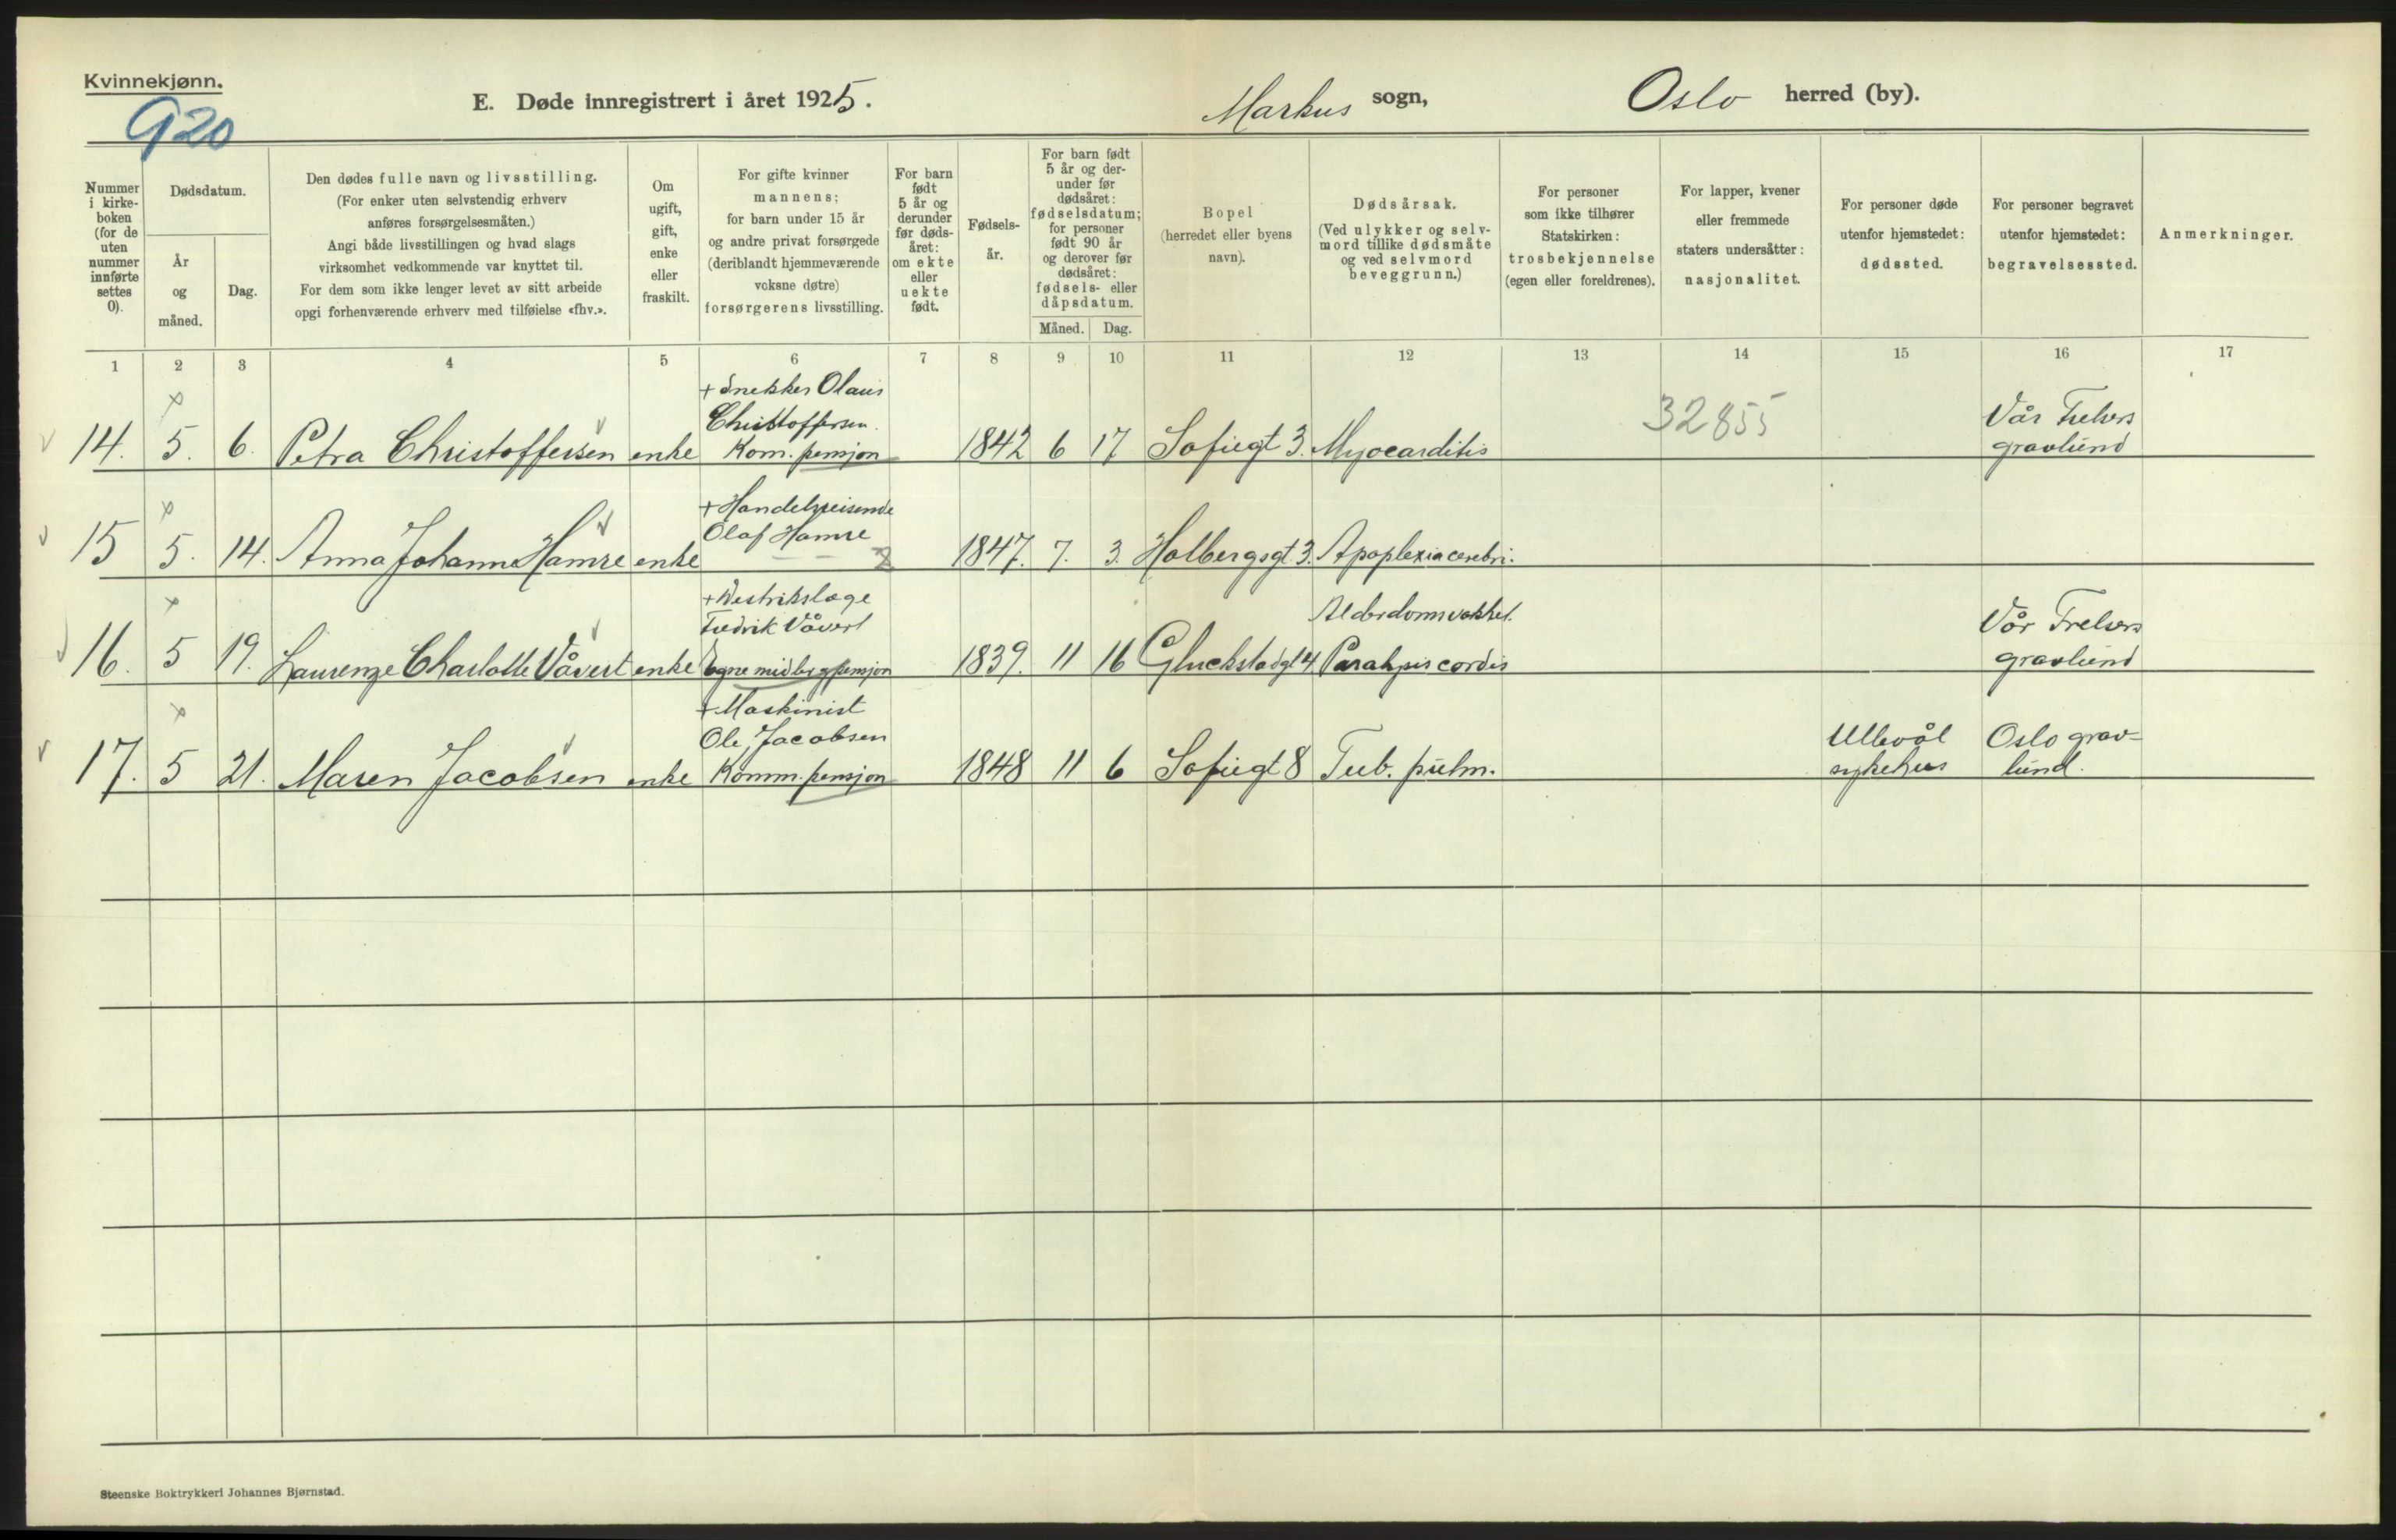 Kvinnekjønn.
920
E. Døde innregistrert i året 1925.
Markus sogn,
Oslo herred (by).
Nummer
i kirke-
boken
(for de
uten
nummer
innførte
settes
0).
Dødsdatum.
År
og
måned.
Dag.
Den dødes fulle navn og livsstilling.
(For enker uten selvstendig erhverv
anføres forsørgelsesmåten.)
Angi både livsstillingen og hvad slags
virksomhet vedkommende var knyttet til.
For dem som ikke lenger levet av sitt arbeide
opgi forhenværende erhverv med tilføielse «fhv.».
Om
ugift,
gift,
enke
eller
fraskilt.
For gifte kvinner
mannens;
for barn under 15 år
og andre privat forsørgede
(deriblandt hjemmeværende
voksne døtre)
forsørgerens livsstilling.
For barn
født
5 år og
derunder
før døds-
året:
om ekte
eller
uekte
født.
Fødsels-
år.
For barn født
5 år og der-
under før
dødsåret:
fødselsdatum;
for personer
født 90 år
og derover før
dødsåret:
fødsels- eller
dåpsdatum.
Måned. Dag.
Bopel
(herredet eller byens
navn).
Dødsårsak.
(Ved ulykker og selv-
mord tillike dødsmåte
og ved selvmord
beveggrunn.)
For personer
som ikke tilhører
Statskirken:
trosbekjennelse
(egen eller foreldrenes).
For lapper, kvener
eller fremmede
staters undersåtter:
nasjonalitet.
For personer døde
utenfor hjemstedet:
dødssted.
For personer begravet
utenfor hjemstedet:
begravelsessted.
Anmerkninger.
1 2 3 4 5 6 7 8 9 10 11 12 13 14 15 16 17
+ Snekker Olaus
Christoffersen.
14. 5. 6. Petra Christoffersen enke Kom. pensjon 1842 6 17 Sofiegt 3. Myocarditis
32855
Vår Frelsers
gravlund
+ Handelsreisende
Olaf Hamre
15 5. 14. Anna Johanne Hamre enke 1847. 7. 3. Holbergsgt. 3. Apoplexia cerebri.
+ Destrikslæge
Fredrik Våvert
Alderdomsvakhet.
16. 5 19. Laurenze Charlotte Våvert enke egne midler og pensjon 1839. 11 16 Gluckstadgt 4. Paralysis cordis
Vår Frelsers
gravlund
+ Maskinist
Ole Jacobsen
17. 5 21. Maren Jacobsen enke Komm. pensjon 1848 11 6 Sofiegt 8 Tub. pulm.
Ullevål
sykehus
Oslo grav-
lund.
Steenske Boktrykkeri Johannes Bjørnstad.